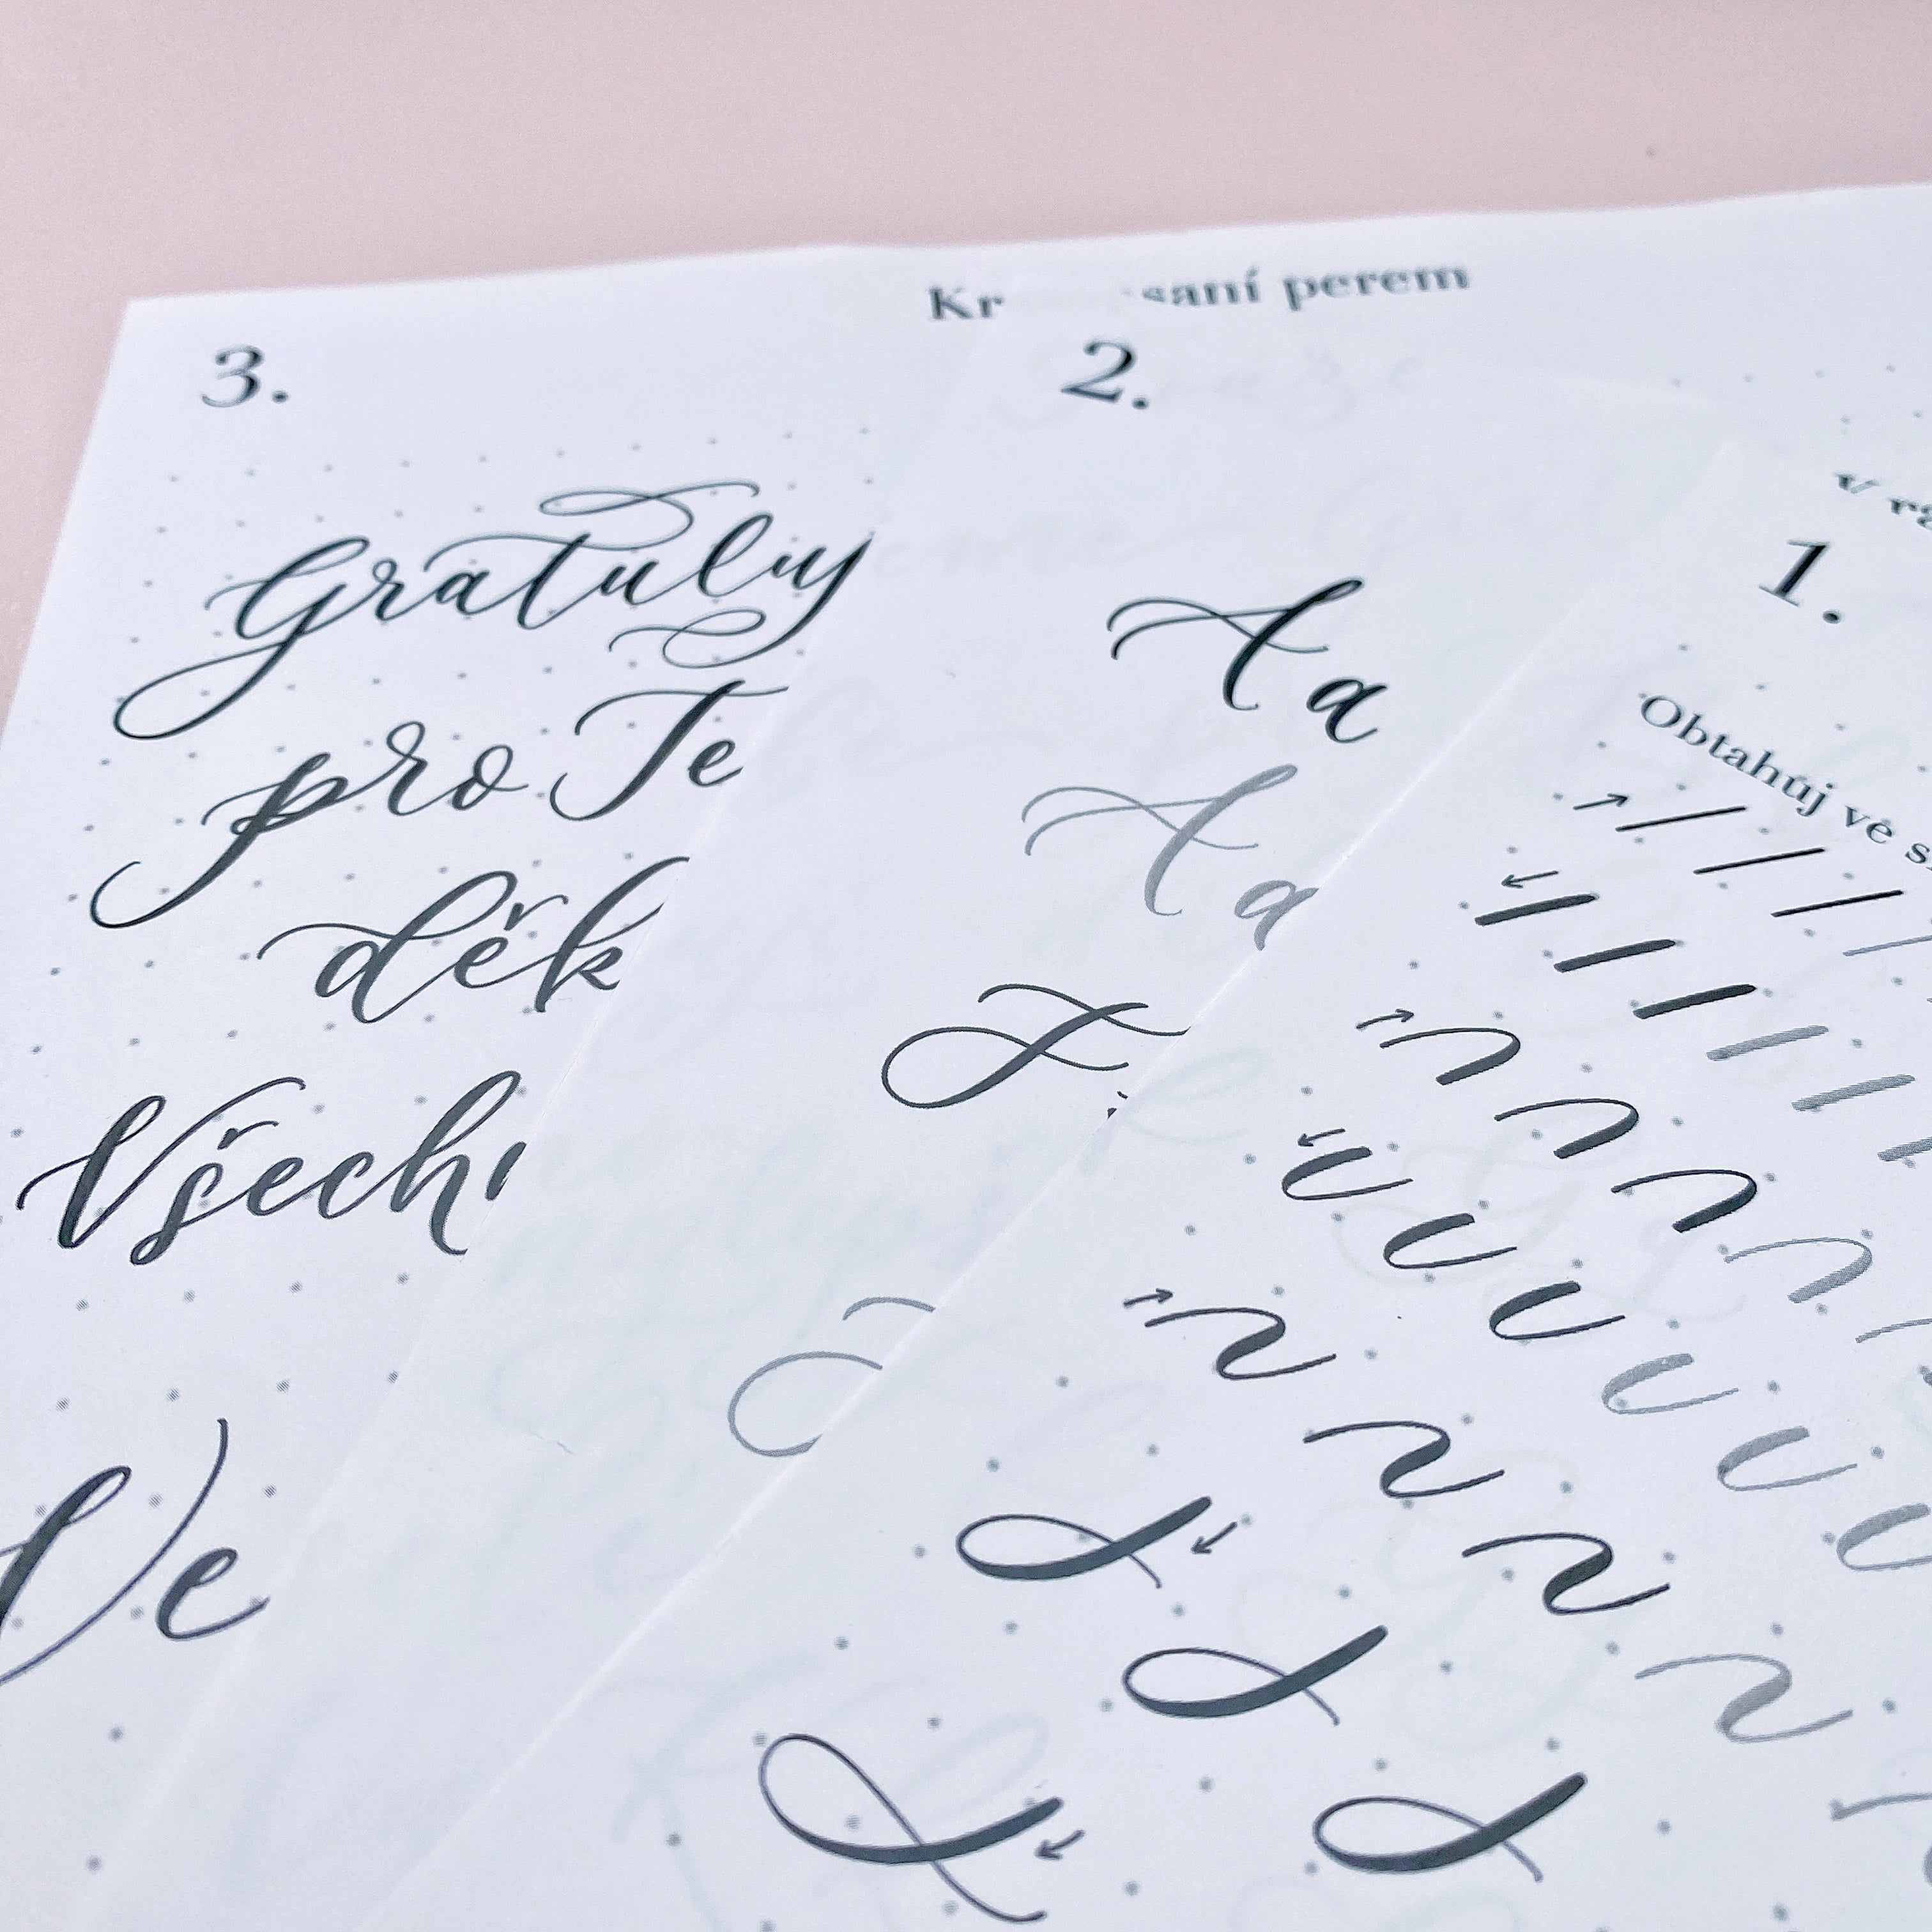 saní perem
3.
Gratuluj
pro Te
děk
Všech
Ve
2.
A a
A a
1.
Obtahuj ve s